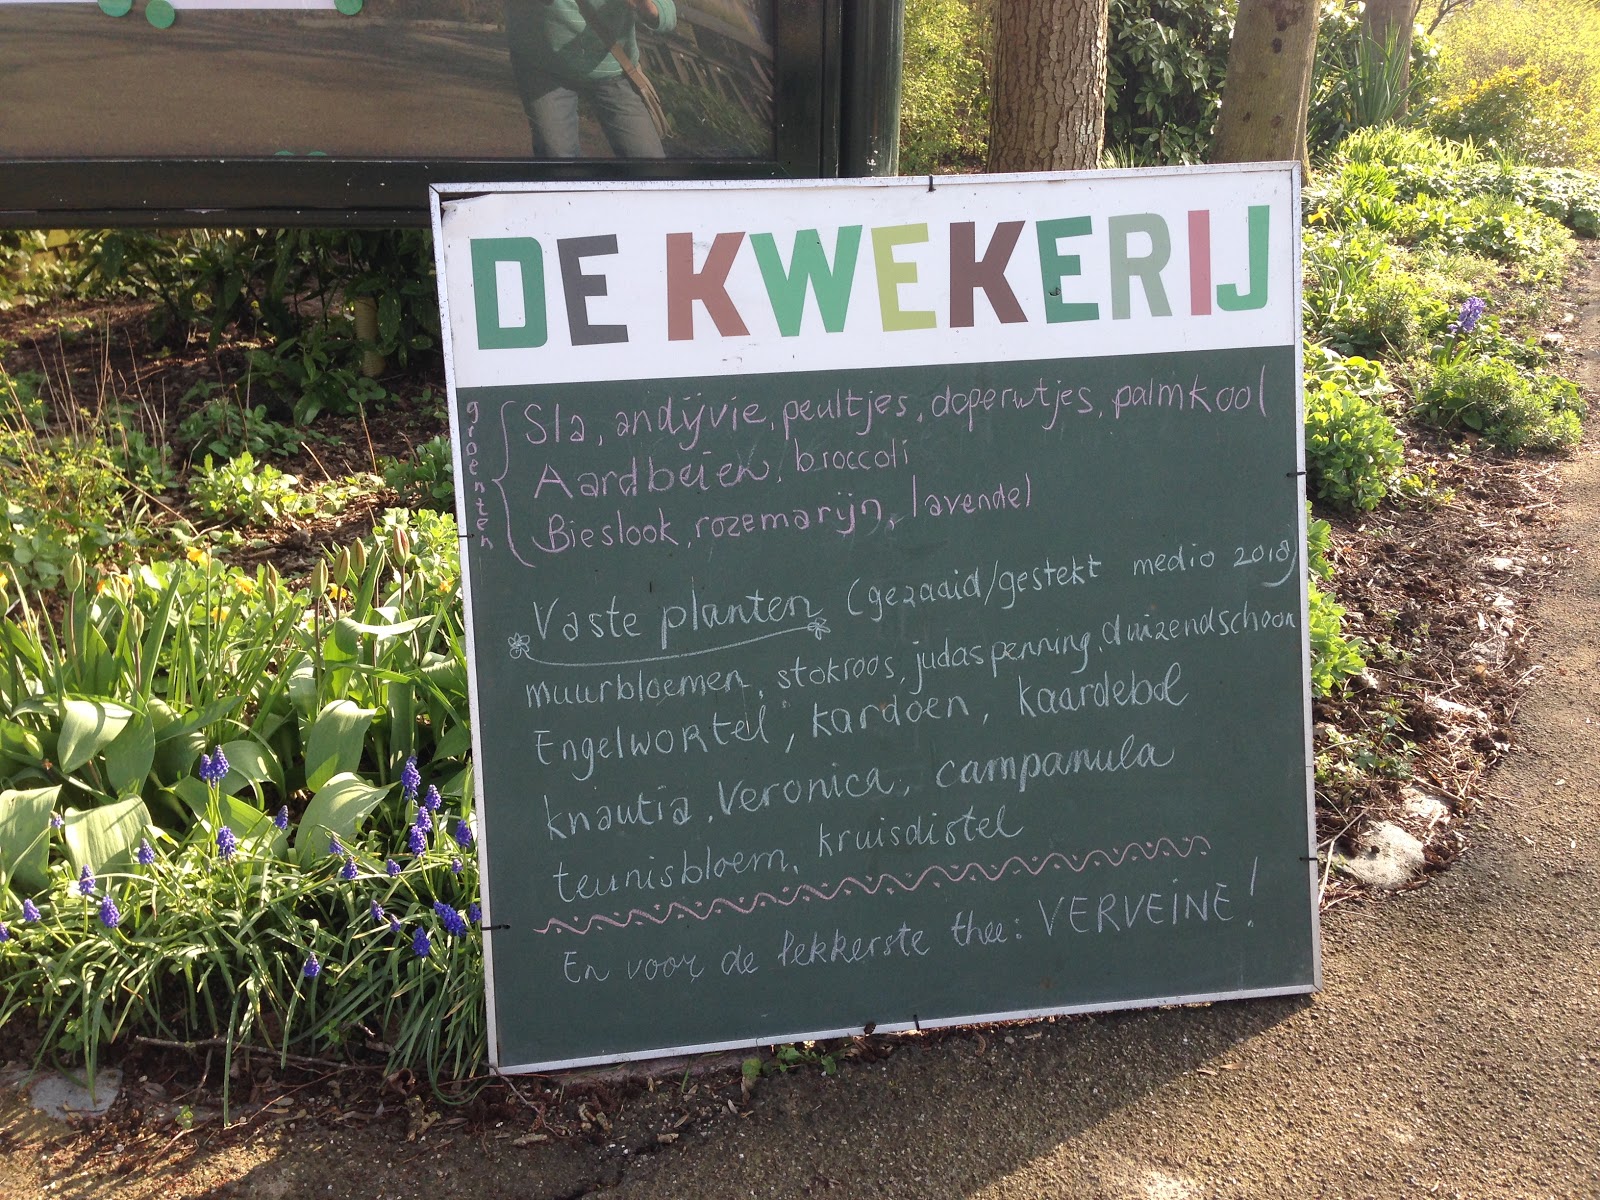 DE KWEKERIJ
groenten
Sla, andijvie, peultjes, doperwtjes, palmkool
Aardbeien, broccoli
Bieslook, rozemarijn, lavendel
Vaste planten (gezaaid/gestekt medio 2018)
muurbloemen, stokroos, judaspenning, duizendschoon
Engelwortel, kardoen, kaardebol
knautia, Veronica, campanula
teunisbloem, kruisdistel
En voor de lekkerste thee: VERVEINE!